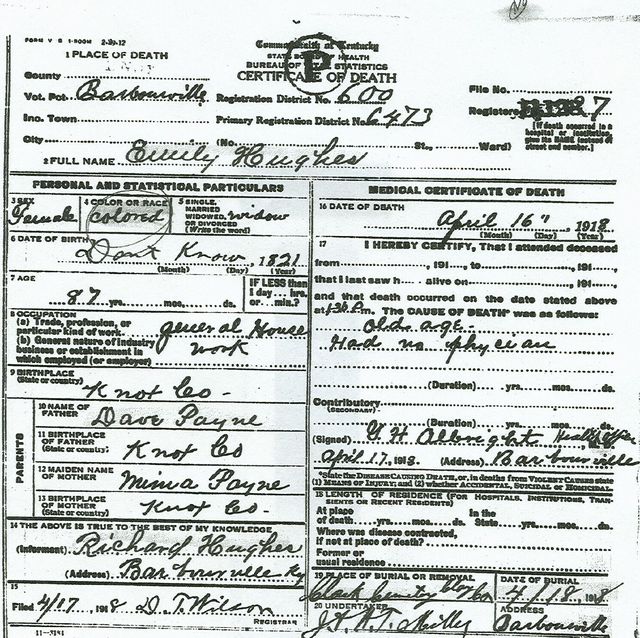 FORM V S 1-500M 2-29-12
1 PLACE OF DEATH
Commonwealth of Kentucky
STATE BOARD OF HEALTH
BUREAU OF VITAL STATISTICS
CERTIFICATE OF DEATH
County
Vot. Pct. Barbourville Registration District No. 600
File No.
Inc. Town Primary Registration District No. 6473
Registered 27
City (No. St., Ward)
[If death occurred in a hospital or institution, give its NAME instead of street and number.]
2 FULL NAME Emily Hughes
PERSONAL AND STATISTICAL PARTICULARS
3 SEX Female
4 COLOR OR RACE colored
5 SINGLE, MARRIED WIDOWED, OR DIVORCED (Write the word) widow
6 DATE OF BIRTH Dont Know, 1821
(Month) (Day) (Year)
7 AGE 87 yrs. mos. ds.
IF LESS than 1 day... hrs. or... min.?
8 OCCUPATION
(a) Trade, profession, or particular kind of work general House
(b) General nature of industry business or establishment in which employed (or employer) work
9 BIRTHPLACE (State or country) Knot Co-
PARENTS
10 NAME OF FATHER Dave Payne
11 BIRTHPLACE OF FATHER (State or country) Knot Co
12 MAIDEN NAME OF MOTHER Mima Payne
13 BIRTHPLACE OF MOTHER Knot Co-
14 THE ABOVE IS TRUE TO THE BEST OF MY KNOWLEDGE
(Informant) Richard Hughes
(Address) Barbourville Ky
15
Filed 4/17, 1918 D. T. Wilson
REGISTRAR
11-3191
MEDICAL CERTIFICATE OF DEATH
16 DATE OF DEATH
April 16", 1918
(Month) (Day) (Year)
17 I HEREBY CERTIFY, That I attended deceased
from , 191 , to , 191 ,
that I last saw h alive on , 191 ,
and that death occurred on the date stated above
at 1:30 P.m. The CAUSE OF DEATH* was as follows:
Old age-
Had no phycian
(Duration) yrs. mos. ds.
Contributory
(SECONDARY)
(Duration) yrs. mos. ds.
(Signed) G H Albright Health Officer
April 17, 1918. (Address) Barbourville
*State the DISEASE CAUSING DEATH, or, in deaths from VIOLENT CAUSES state (1) MEANS OF INJURY; and (2) whether ACCIDENTAL, SUICIDAL or HOMICIDAL.
18 LENGTH OF RESIDENCE (FOR HOSPITALS, INSTITUTIONS, TRANSIENTS OR RECENT RESIDENTS)
At place of death yrs. mos. ds. In the State yrs. mos. ds.
Where was disease contracted, if not at place of death?
Former or usual residence
19 PLACE OF BURIAL OR REMOVAL
DATE OF BURIAL
4/18, 1918
20 UNDERTAKER
ADDRESS
Barbourville